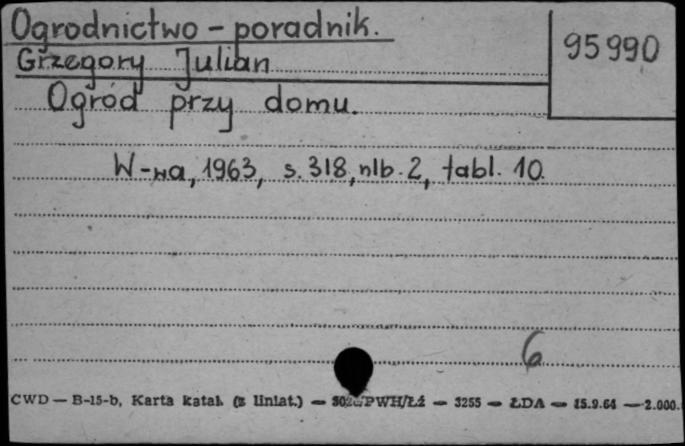 Ogrodnictwo - poradnik.
95990
Grzegory Julian
Ogród przy domu.
W-wa, 1963, s. 318, nlb. 2, tabl. 10.
6
CWD — B-15-b, Karta katal. (z liniat.) — PWH/Łź — 3255 — ŁDA — 15.9.64 — 2.000.